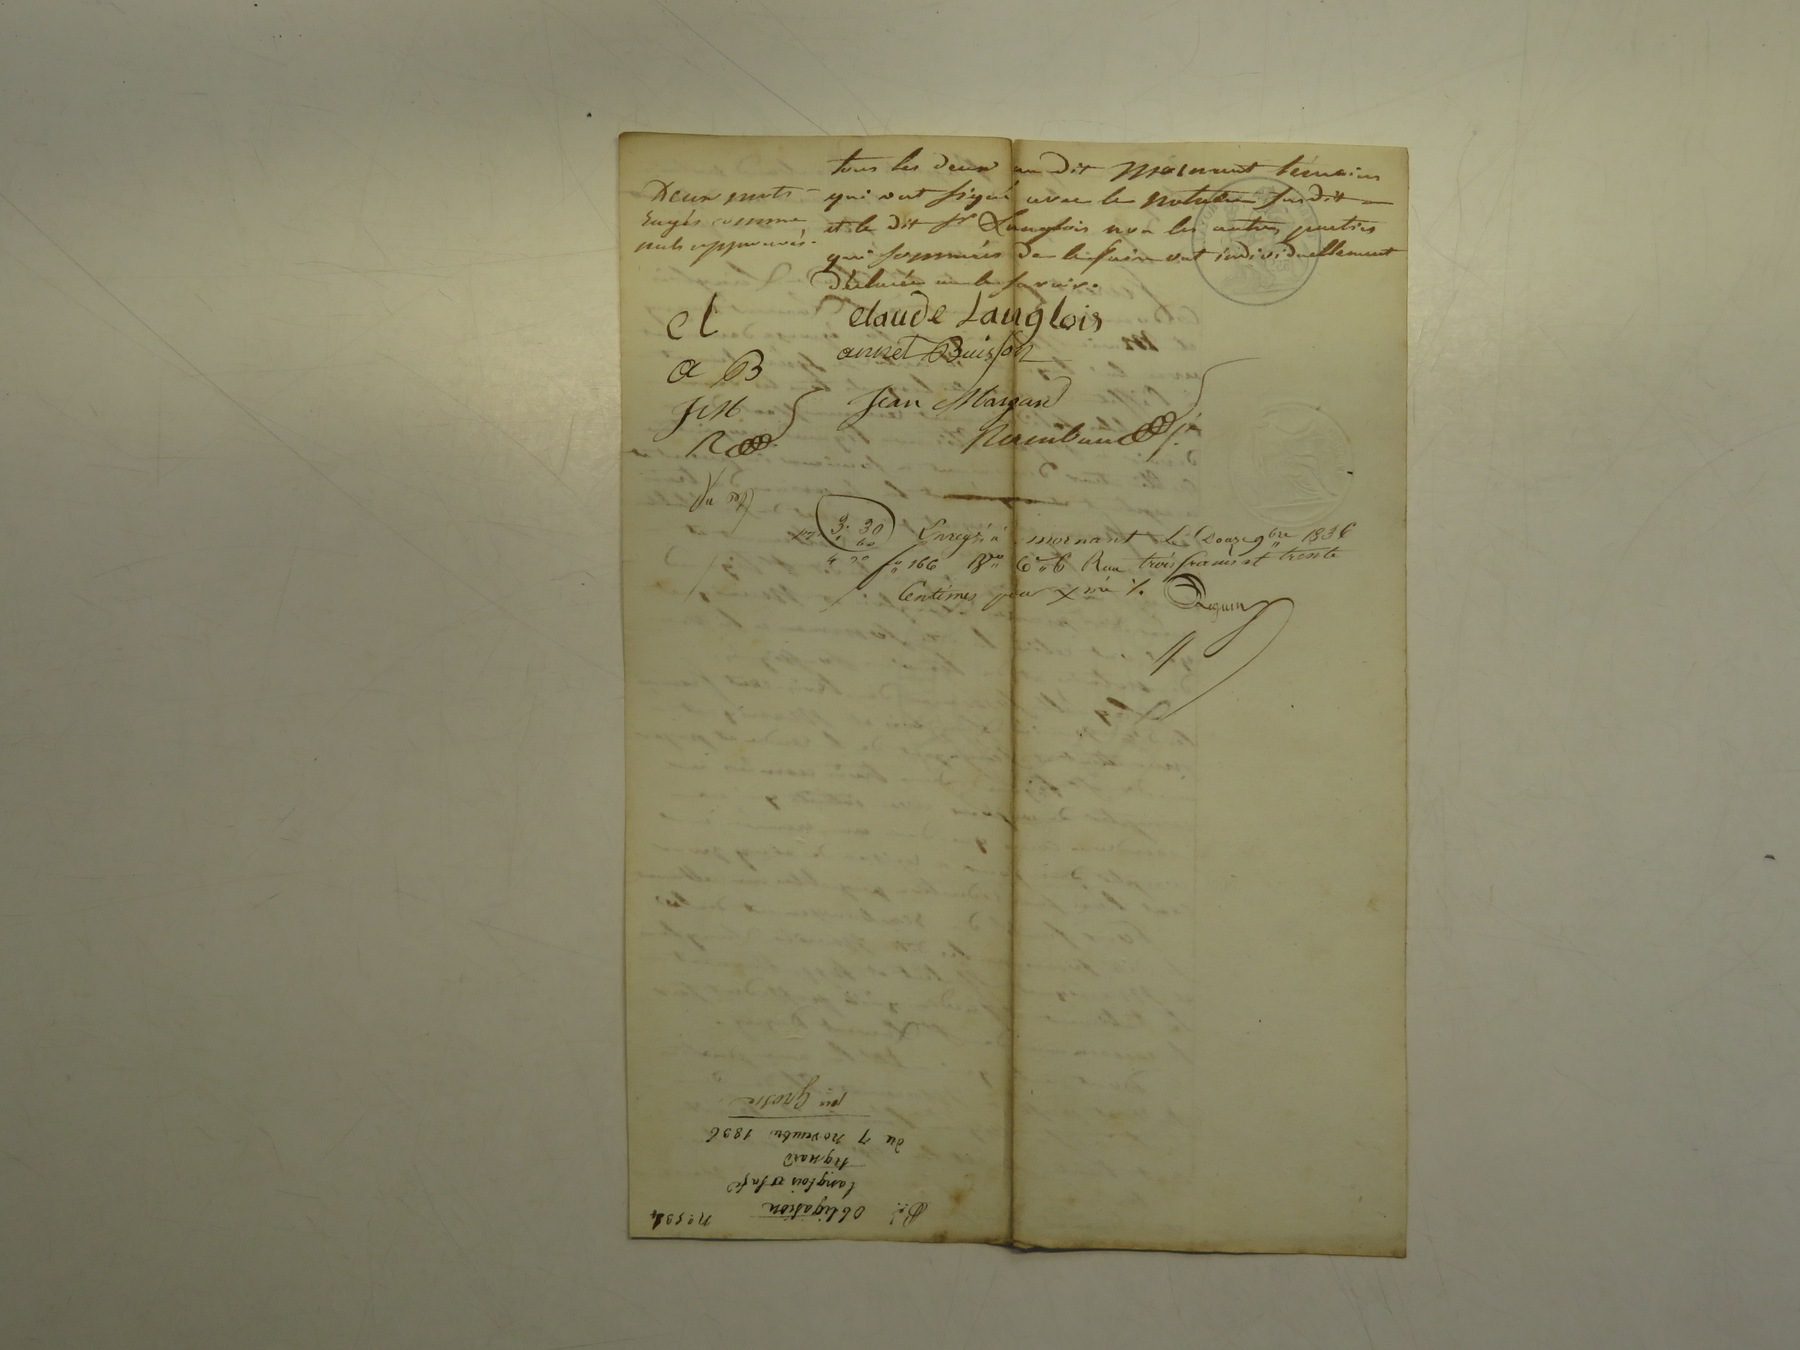 tous les deux au dit Mornant témoins
qui ont signé avec le notaire susdit
et le dit Sr Langlois non les autres parties
qui sommées de le faire ont individuellement
déclaré ne le savoir.
Deux mots
rayés comme
nuls approuvés.
Claude Langlois
annet Buisson
Jean Margand
Rambaud
C L
A B
J M
R
Vu
3. 30
Enregé à mornant le Douze 9bre 1836
fo 166 Vo Co 6 Reçu trois francs et trente
Centimes pour xme %.
No 594
Obligation
Langlois et
du 7 novembre 1836
Grosse